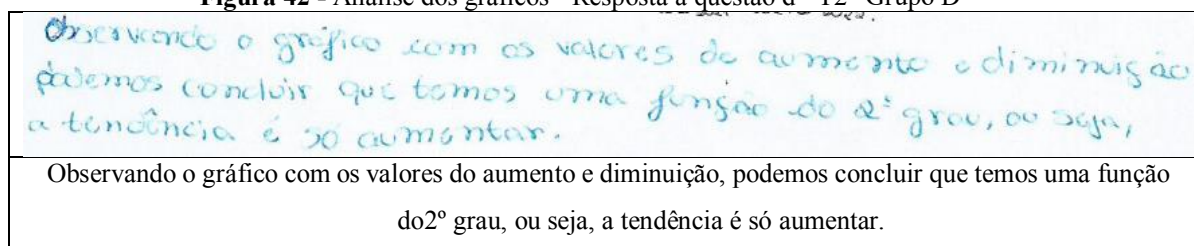 Figura 42 - Análise dos gráficos - Resposta à questão d - T2 - Grupo D
Observando o gráfico com os valores do aumento e diminuição
podemos concluir que temos uma função do 2º grau, ou seja,
a tendência é só aumentar.
Observando o gráfico com os valores do aumento e diminuição, podemos concluir que temos uma função
do2º grau, ou seja, a tendência é só aumentar.